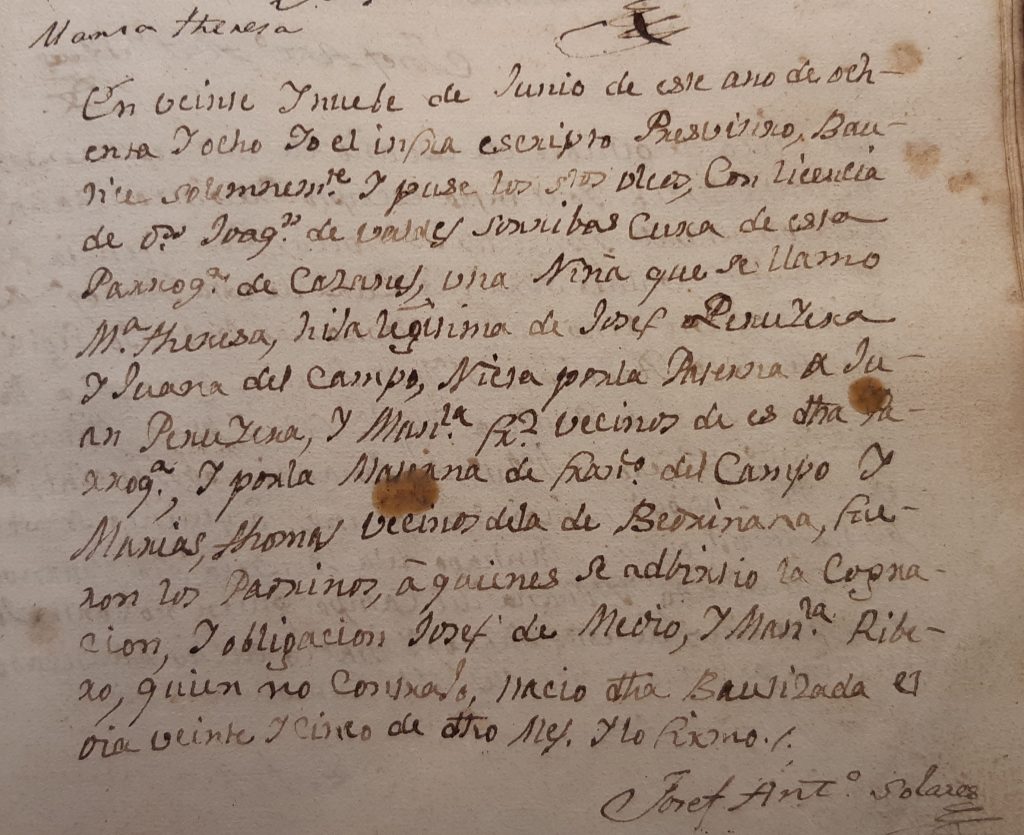 Maria theresa
En veinte Y nuebe de Junio de este ano de och-
enta Y ocho Yo el infra escripto Presvitero, Bau-
tice solemnem.te Y puse los s.tos oleos, Con licencia
de D.n Joaq.n de valdes sorribas Cura de esta
Parroq.a de Cazanes, una Niña que se llamo
M.a theresa, hila legitima de Josef Peruyera
Y Juana del Campo, Nieta porla Paterna a Ju-
an Peruyera, Y Man.la fr.z vecinos de es dha Pa-
rroq.a, Y porla Materna de fran.co del Campo Y
Marias, thomas vecinos dela de Bedrinana, fue-
ron los Padrinos, à quienes se adbirtio la Cogna-
cion, Y obligacion Josef de Medio, Y Man.la Ribe-
ro, quien no Contrajo, nacio dha Bautizada el
dia veinte Y cinco de dho Mes. Y lo firmo./.
Josef Ant.o Solares